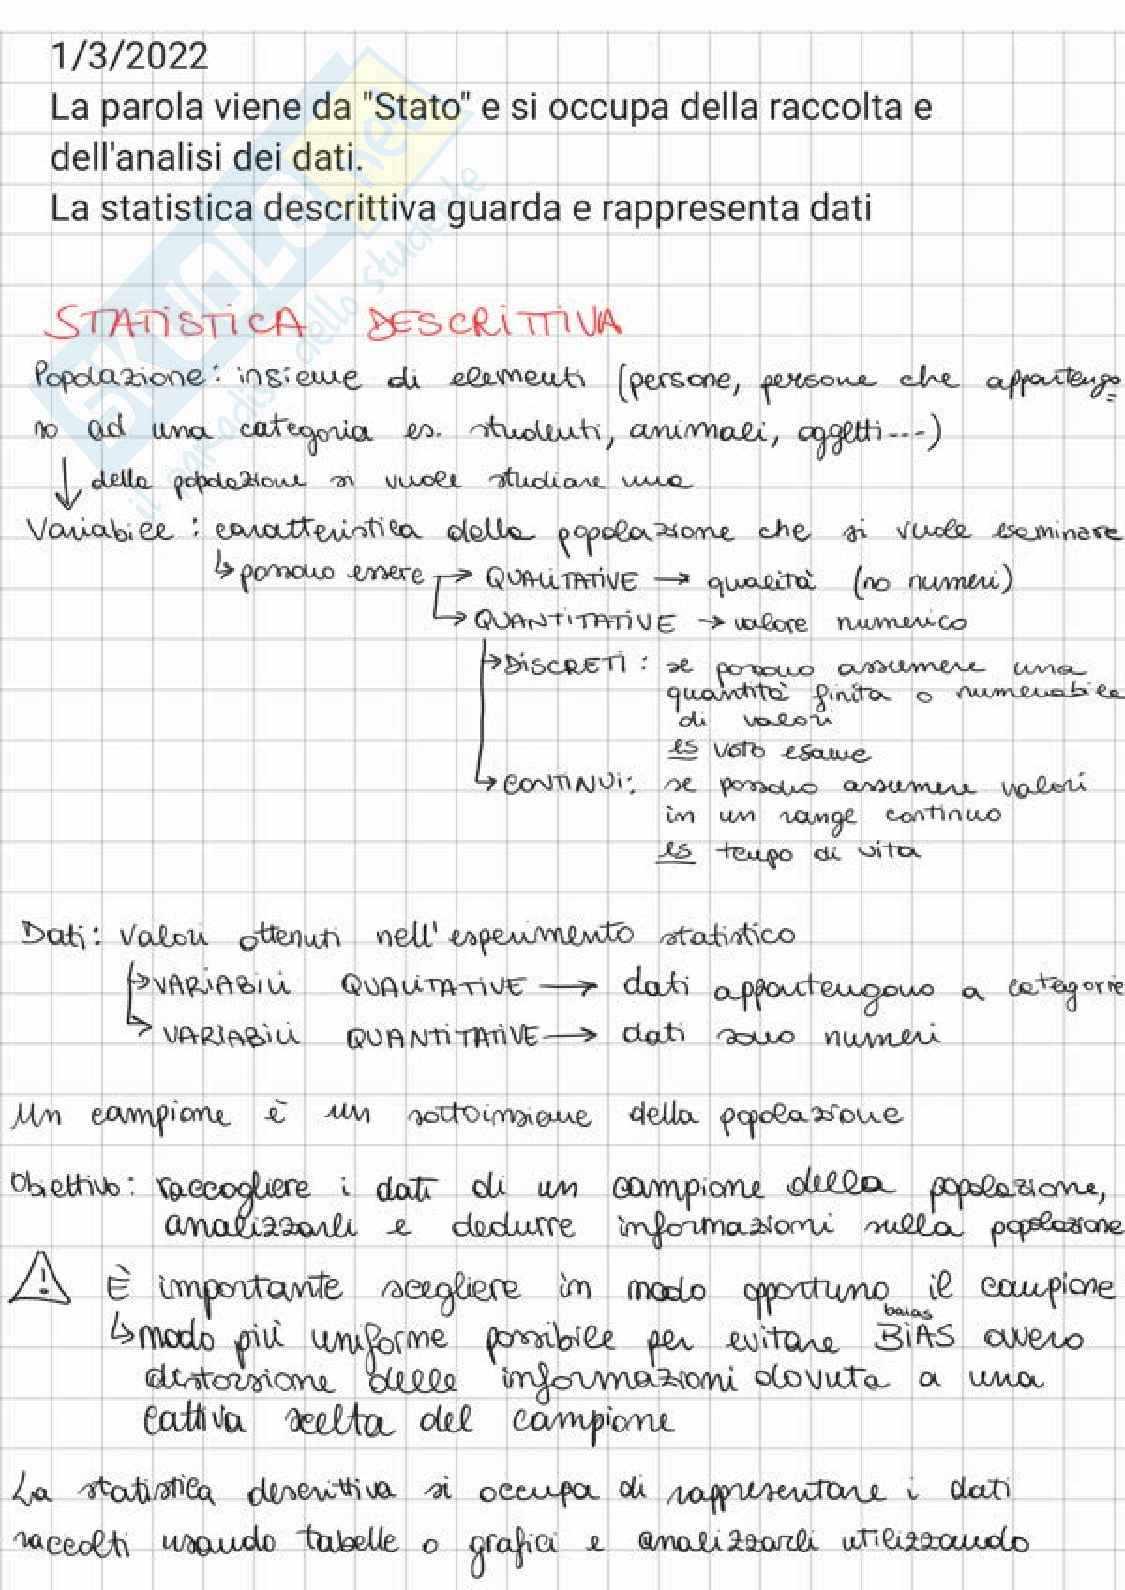 1/3/2022
La parola viene da "Stato" e si occupa della raccolta e
dell'analisi dei dati.
La statistica descrittiva guarda e rappresenta dati
STATISTICA DESCRITTIVA
Popolazione: insieme di elementi (persone, persone che appartengo=
no ad una categoria es. studenti, animali, oggetti...)
↓ della popolazione si vuole studiare una
Variabile: caratteristica della popolazione che si vuole esaminare
↳ possono essere → QUALITATIVE → qualità (no numeri)
↳ QUANTITATIVE → valore numerico
→ DISCRETI: se possono assumere una
quantità finita o numerabile
di valori
es voto esame
↳ CONTINUI: se possono assumere valori
in un range continuo
es tempo di vita
Dati: valori ottenuti nell'esperimento statistico
→ VARIABILI QUALITATIVE → dati appartengono a categorie
↳ VARIABILI QUANTITATIVE → dati sono numeri
Un campione è un sottoinsieme della popolazione
Obiettivo: raccogliere i dati di un campione della popolazione,
analizzarli e dedurre informazioni sulla popolazione
⚠ È importante scegliere in modo opportuno il campione
baias
↳ modo più uniforme possibile per evitare BIAS ovvero
distorsione delle informazioni dovuta a una
cattiva scelta del campione
La statistica descrittiva si occupa di rappresentare i dati
raccolti usando tabelle o grafici e analizzarli utilizzando
SKUOLA.net
il paradiso dello studente